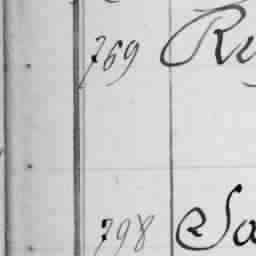 769 Ru
798 Sa